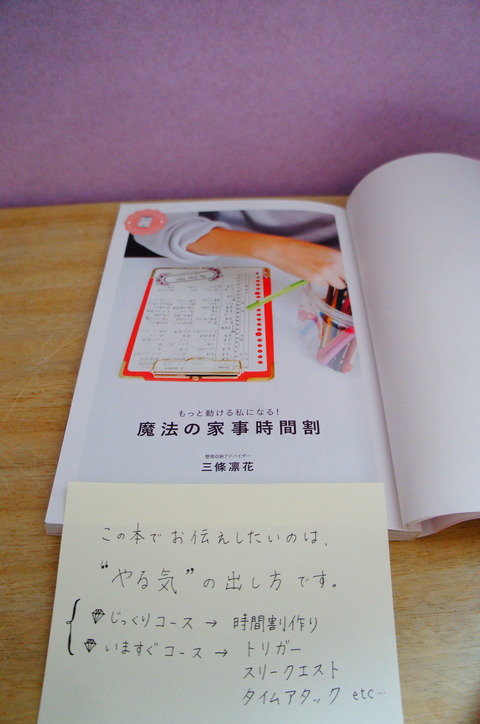 もっと動ける私になる!
魔法の家事時間割
整理収納アドバイザー
三條凛花
この本でお伝えしたいのは、
“やる気”の出し方です。
じっくりコース → 時間割作り
いますぐコース → トリガー
スリークエスト
タイムアタック etc…